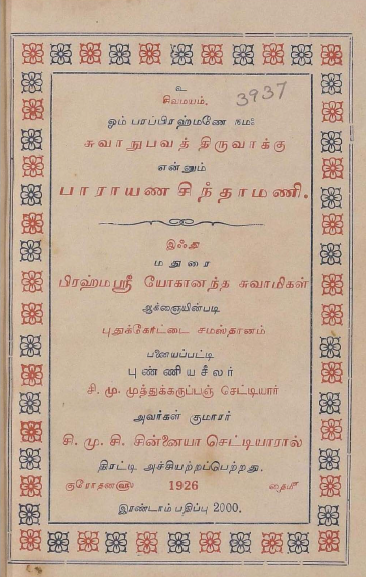 உ
சிவமயம்.
3937
ஓம் பரப்பிரஹ்மணே நமஃ
சுவாநுபவத் திருவாக்கு
என்னும்
பாராயண சிந்தாமணி.
இஃது
மதுரை
பிரஹ்மஸ்ரீ யோகானந்த சுவாமிகள்
ஆக்ஞையின்படி
புதுக்கோட்டை சமஸ்தானம்
பனையப்பட்டி
புண்ணியசீலர்
சி. மு. முத்துக்கருப்பஞ் செட்டியார்
அவர்கள் குமாரர்
சி. மு. சி. சின்னையா செட்டியாரால்
திரட்டி அச்சியற்றப்பெற்றது.
குரோதன௵ 1926 தை௴
இரண்டாம் பதிப்பு 2000.